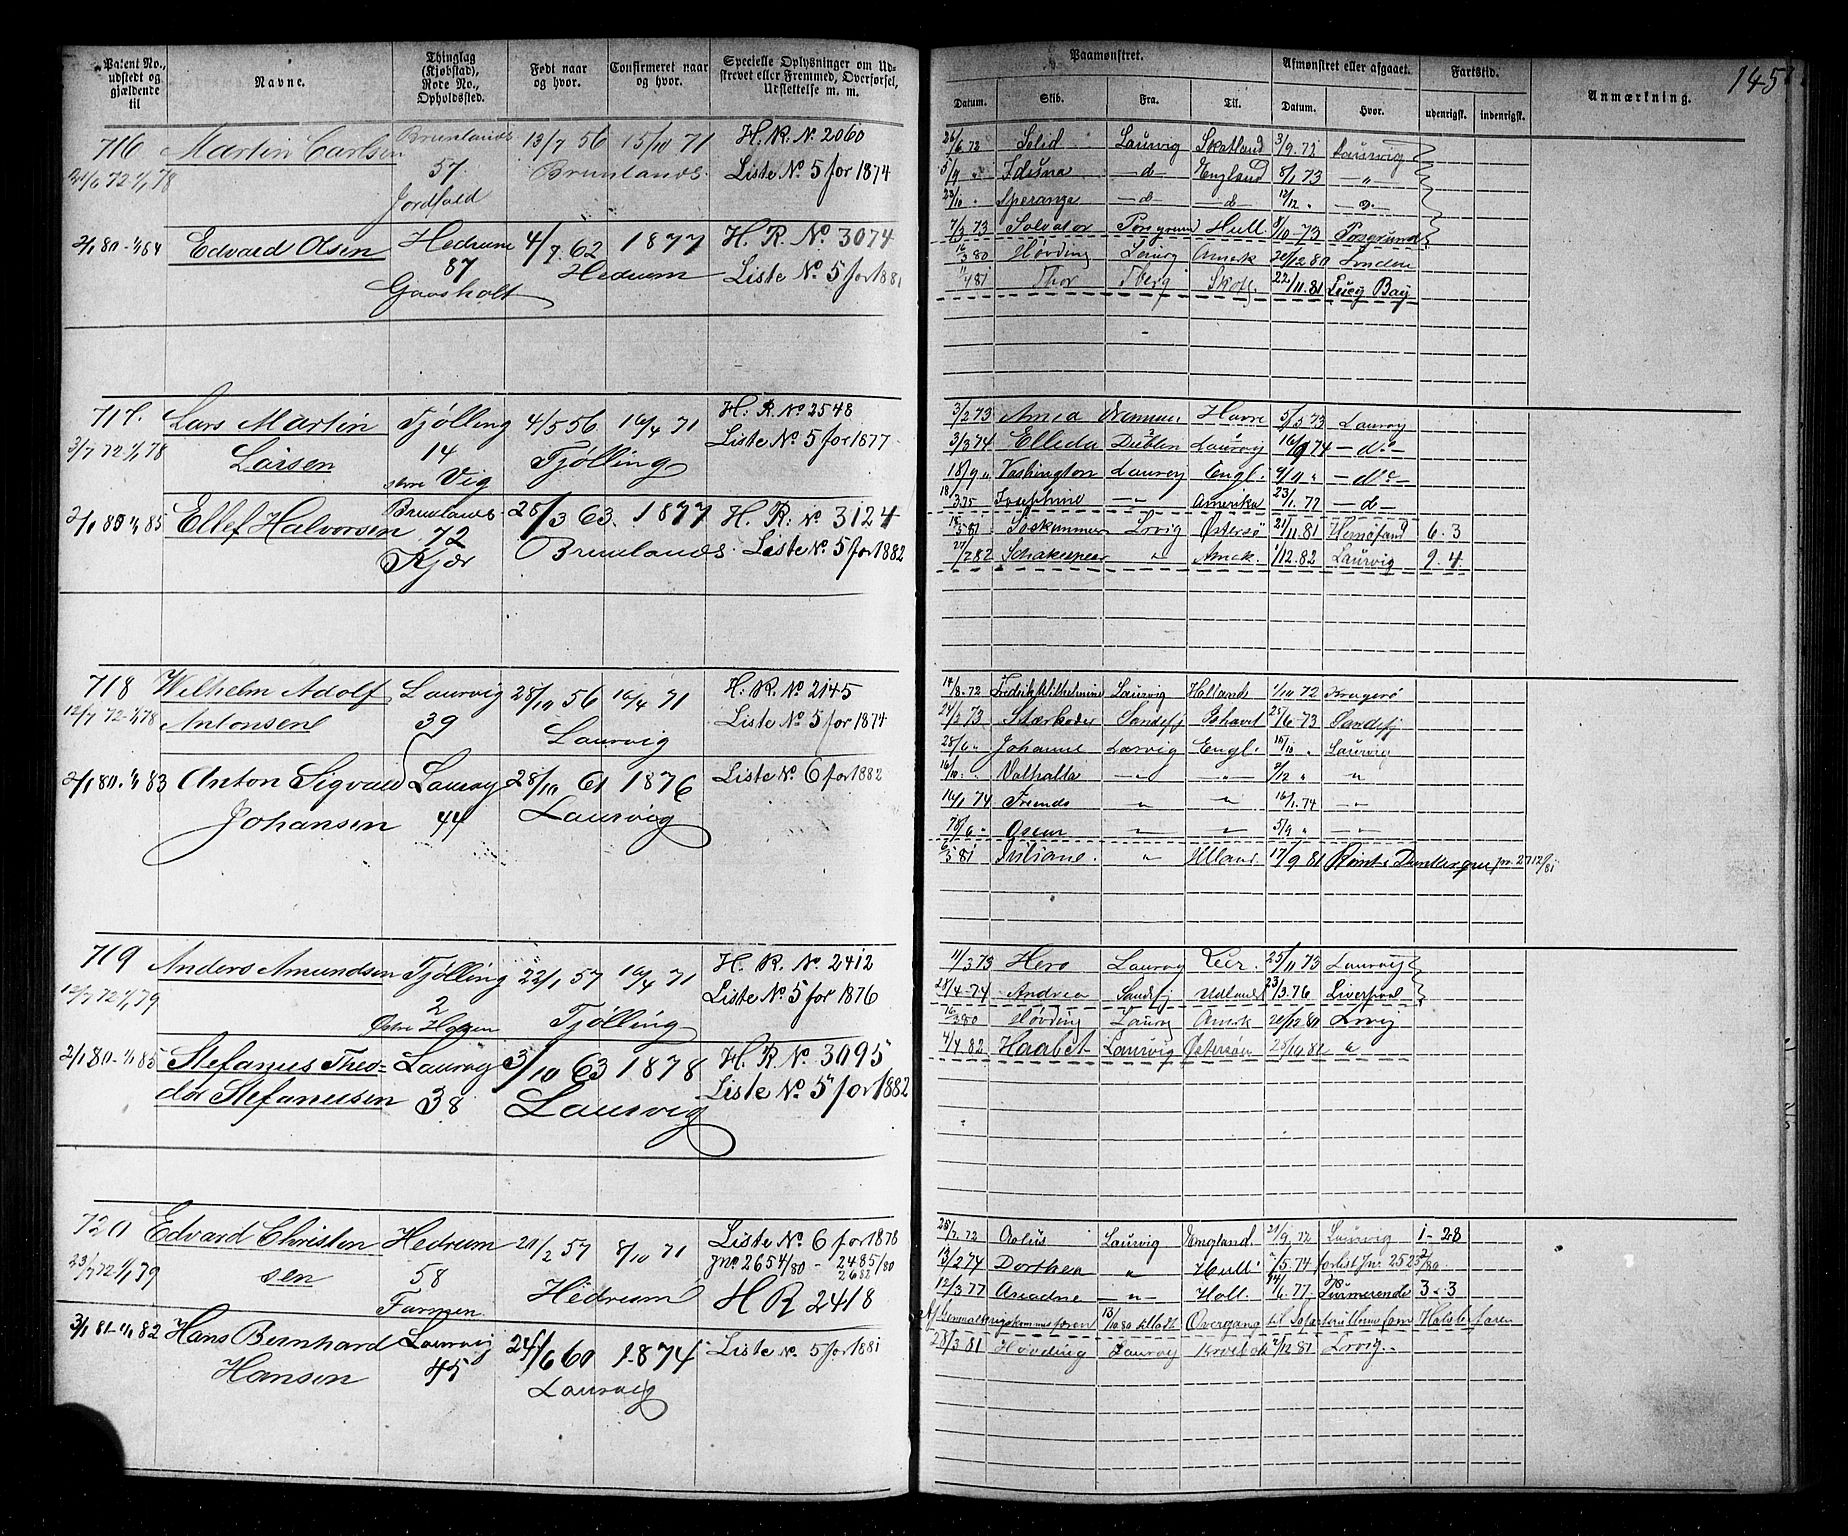 145
Patent No., udstedt og gjældende til
Navne.
Thinglag (Kjøbstad), Rode No., Opholdssted.
Født naar og hvor.
Confirmeret naar og hvor.
Specielle Oplysninger om Udskrevet eller Fremmed, Overførsel, Udslettelse m. m.
Paamønstret.
Afmønstret eller afgaaet.
Fartstid.
Anmærkning.
Datum. Skib. Fra. Til. Datum. Hvor. udenrigsk. indenrigsk.
716 Martin Carlsen Brunlands 13/7 56 15/10 71 H. R. No 2060
24/6 72 1/1 78 57 Brunlands Liste No 5 for 1874
Jordfald
2/1 80 - 1/1 84 Edvard Olsen Hedrum 4/9 62 1877 H. R. No 3074
87 Hedrum Liste No 5 for 1881
Gaasholt
26/6 72 Solid Laurvig Skotland 3/9 72 Laurvig
5/9 " Iduna - d - England 8/1 73 - " -
23/10 " Speranza - d - - d - 12/12 "
7/3 73 Salvator Porsgrund Hull 8/10 73 Porsgrund
16/3 80 Høvding Laurv Amerk 20/12 80
11/4 81 Thor Tberg Skotl. 22/11 81 Bay
717. Lars Martin Tjølling 4/5 56 16/4 71 H. R. No 2548
3/7 72 1/1 78 Larsen 14 Tjølling Liste No 5 for 1877
Vig
2/1 80 1/1 85 Ellef Halvorsen Brunlands 28/3 63. 1877 H. R. No 3124
72 Brunlands. Liste No. 5 for 1882
Kjær
3/2 73 Havre 5/5 73 Laurv
3/3 74 Elleda Dublin Laurv 16/9 74 - do -
18/9 " Vashington Laurv Engl. 4/11 " - do -
18/3 75 Josephine - " - Amerika 23/1 77 - d -
18/5 81 Lrvig Østersø 21/11 81 Hernøsand 6. 3
27/2 82 Schakespear " Amek. 1/12 82 Laurvig 9. 4.
718 Wilhelm Adolf Laurvig 28/10 56 16/4 71 H. R. No 2145
12/7 72 - 1/1 78 Antonsen 39 Laurvig Liste No 5 for 1874
2/1 80 - 1/1 83 Anton Sigvald Laurvig 28/10 61 1876 Liste No 6 for 1882
Johansen 44 Laurvig
14/8 72 Fredrik Wilhelmine Laurvig Holland 1/10 72 Kragerø
24/2 73 Stærkoder Sandefj Ishavet 25/6 73 Sandefj
28/6 " Johanne Larvig Engl. 10/10 " Laurvig
16/10 " Valhalla - " - - " - 2/12 " "
16/1 74 " " 16/1 74 - " -
78/6 " Oscar " " 5/9 " - " -
6/5 81 Juliane. " 17/9 81
719 Anders Amundsen Tjølling 22/1 57 16/4 71 H. R. No 2412
12/7 72 1/1 79 2 Tjølling Liste No 5 for 1876
Østre
2/1 80 - 1/1 85 Stefanus Theo- Laurvig 3/10 63 1878 H. R. No 3095
dor Stefanusen 38 Laurvig Liste No 5 for 1882
11/3 73 Hero Laurv 25/11 73 Laurvig
28/4 74 Andrea Sandefj Udlandet 23/3 76 Liverpool
16/3 80 Høvding Laurv Amerk 20/12 80 Lrvig
4/4 82 Haabet Laurvig Østersøen 25/10 82 "
720 Edvard Christen Hedrum 21/2 57 8/10 71 Liste No 6 for 1878
23/7 72 1/1 79 sen 58 Hedrum Jno 2654/80 - 2485/80
Farmen 2682
H R 2418
3/1 81 - 1/1 82 Hans Bernhard Laurvig 24/6 60 1874 Liste No. 5 for 1881
Hansen 45 Laurvig
25/7 72 Laurvig England. 21/9 72 Laurvig 1 - 28
13/2 74 Dorthea " Hull /5 74 forlist Jnr. 2525/80
12/3 77 Ariadne - " - Holl. 14/6 77 Purmerende 3 - 3
28/3 81 Høvding Laurv 7/12 81 Lrvig.